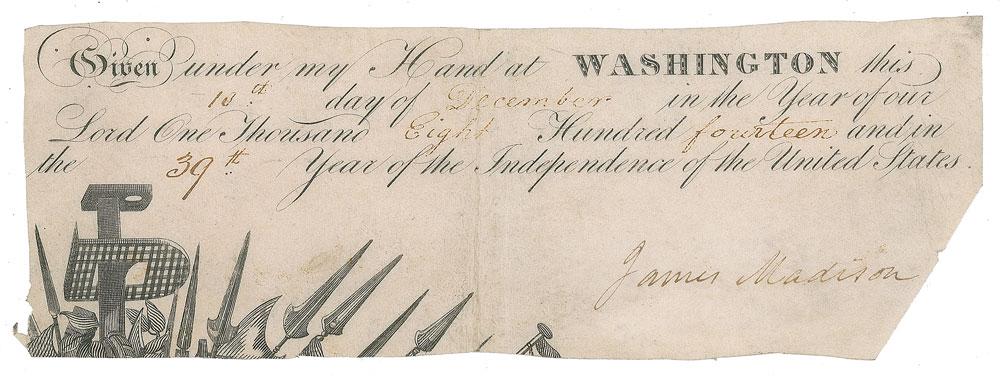 Given under my Hand at WASHINGTON this
10th day of December in the Year of our
Lord One Thousand Eight Hundred fourteen and in
the 39th Year of the Independence of the United States.
James Madison